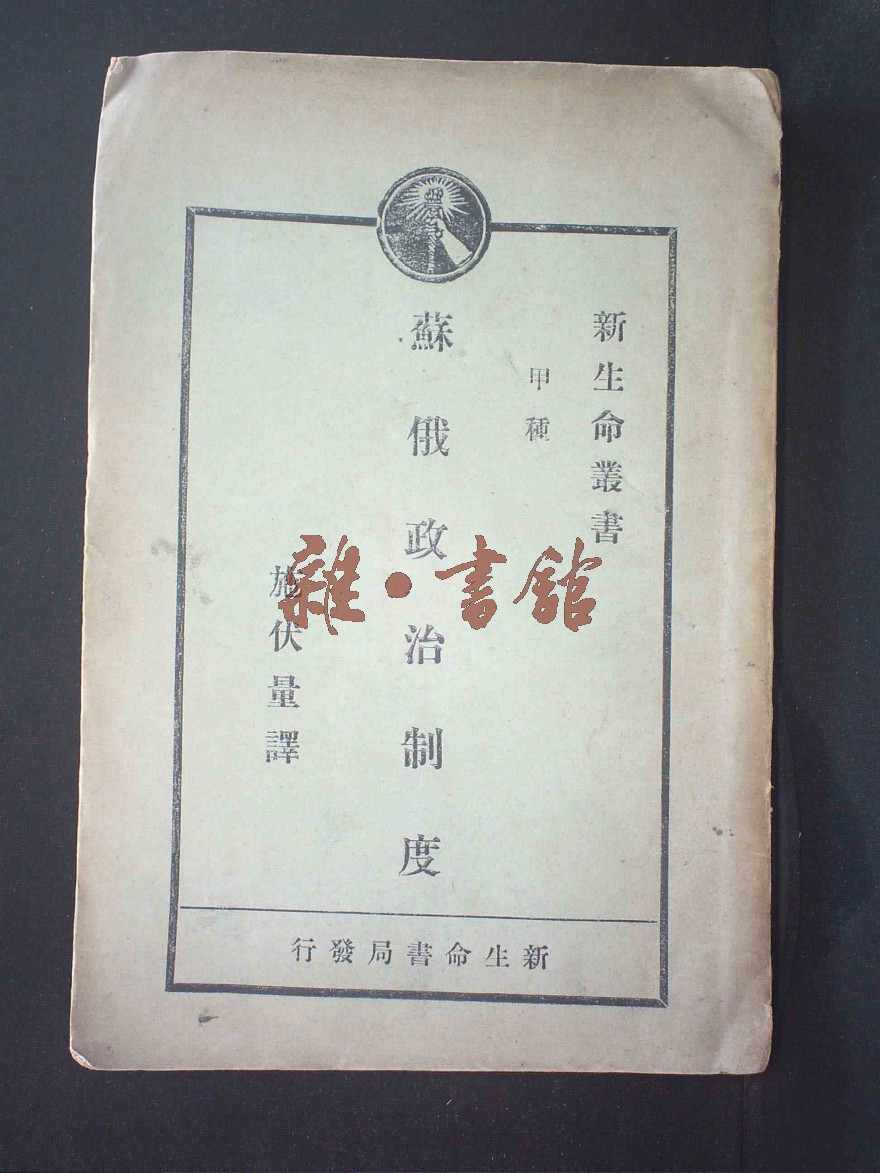 新生命叢書
甲種
蘇俄政治制度
施伏量譯
新生命書局發行
雜·書館